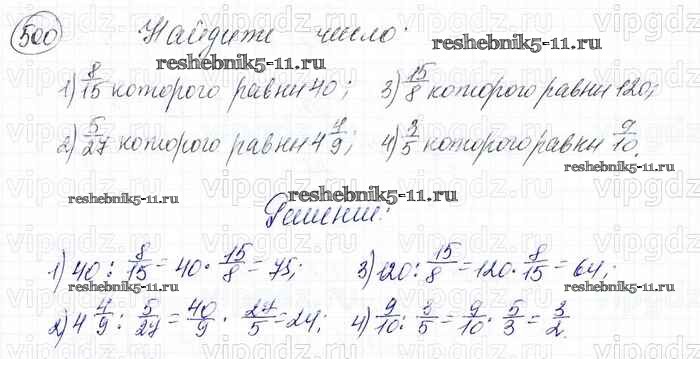 500 Найдите число:
reshebnik5-11.ru
1) 8/15 которого равны 40; 3) 15/8 которого равны 120;
2) 5/27 которого равны 4 4/9; 4) 3/5 которого равны 9/10.
reshebnik5-11.ru
reshebnik5-11.ru reshebnik5-11.ru
Решение:
1) 40 : 8/15 = 40 · 15/8 = 75; 3) 120 : 15/8 = 120 · 8/15 = 64;
reshebnik5-11.ru reshebnik5-11.ru
2) 4 4/9 : 5/27 = 40/9 · 27/5 = 24; 4) 9/10 : 3/5 = 9/10 · 5/3 = 3/2.